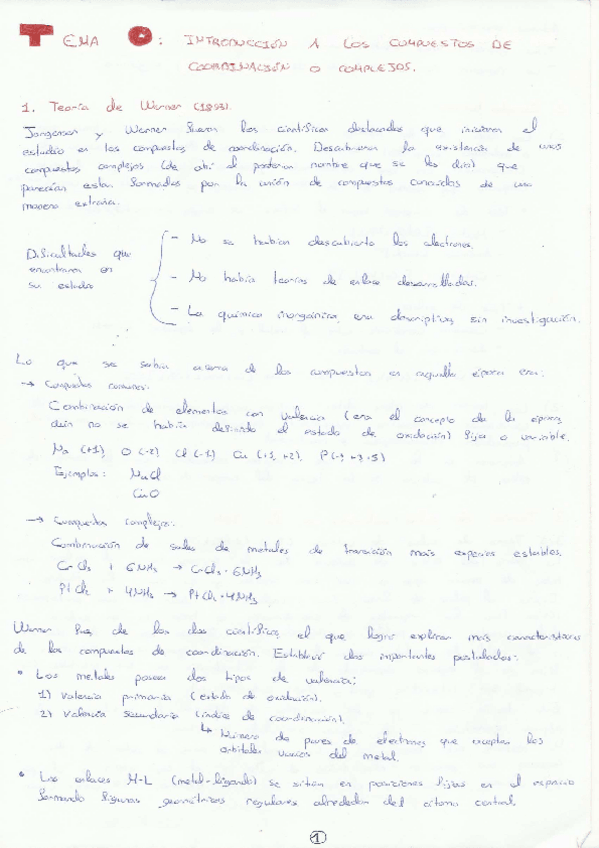 TEMA 0: INTRODUCCIÓN A LOS COMPUESTOS DE
COORDINACIÓN O COMPLEJOS.
1. Teoría de Werner (1893).
Jorgensen y Werner fueron los científicos destacados que iniciaron el
estudio en los compuestos de coordinación. Descubrieron la existencia de unos
compuestos complejos (de ahí el posterior nombre que se les dio) que
parecían estar formados por la unión de compuestos conocidos de una
manera extraña.
Dificultades que
encontraron en
su estudio
- No se habían descubierto los electrones.
- No había teorías de enlace desarrolladas.
- La química inorgánica era descriptiva, sin investigación.
Lo que se sabía acerca de los compuestos en aquella época era:
→ Compuestos comunes:
Combinación de elementos con valencia (era el concepto de la época,
aún no se había definido el estado de oxidación) fija o variable.
Na (+1), O (-2) Cl (-1) Cu (+1, +2), P(-3, +3, 5)
Ejemplos: NaCl
CuO
→ Compuestos complejos:
Combinación de sales de metales de transición más especies estables.
CrCl3 + 6NH3 → CrCl3·6NH3
PtCl2 + 4NH3 → PtCl2·4NH3
Werner fue, de los dos científicos, el que logró explicar más características
de los compuestos de coordinación. Estableció dos importantes postulados:
• Los metales poseen dos tipos de valencia:
1) Valencia primaria (estado de oxidación).
2) Valencia secundaria (índice de coordinación).
↳ Número de pares de electrones que aceptan los
orbitales vacíos del metal.
• Los enlaces M-L (metal-ligando) se sitúan en posiciones fijas en el espacio
formando figuras geométricas regulares alrededor del átomo central.
1